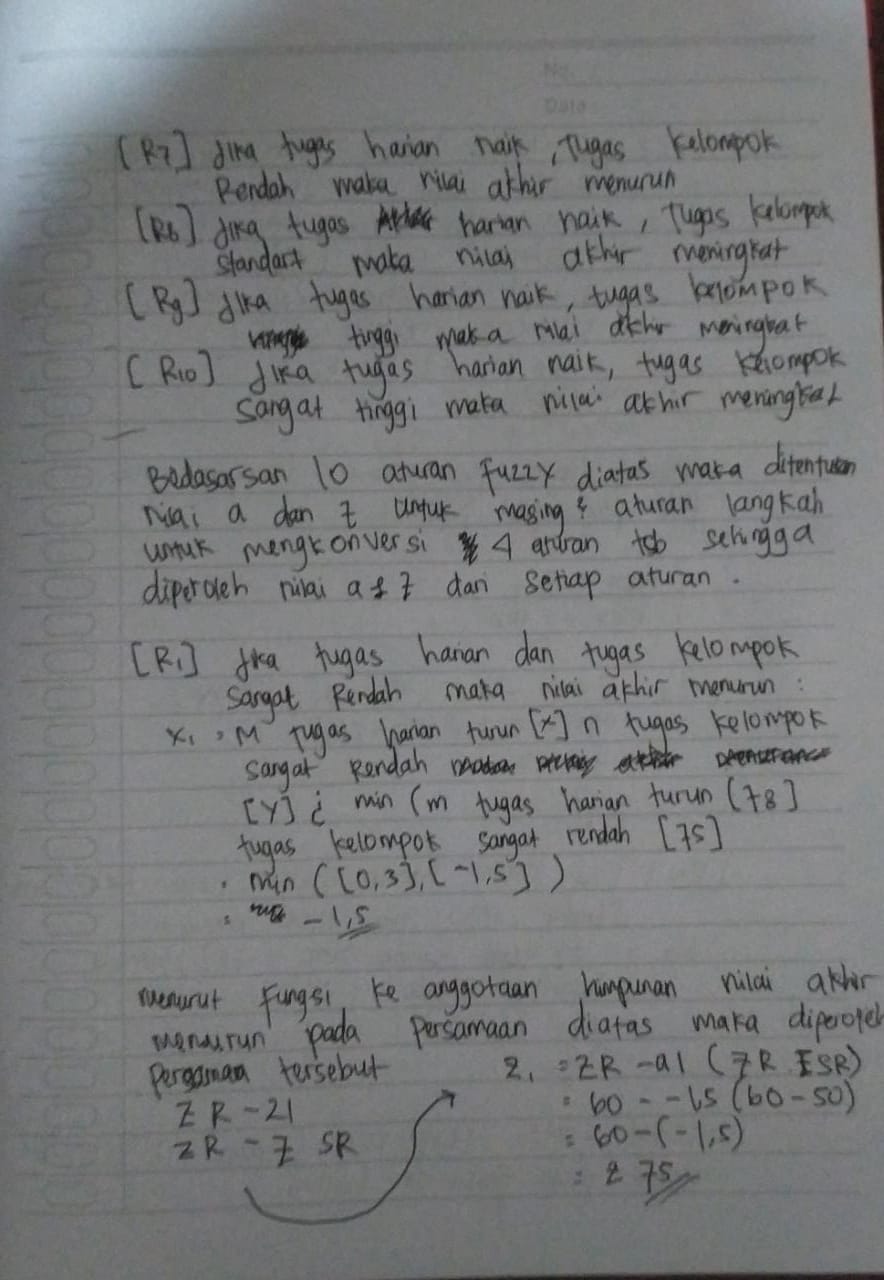 No.
Date
[R7] Jika tugas harian naik, Tugas Kelompok
Rendah maka nilai akhir menurun
[R8] Jika tugas harian naik, Tugas kelompok
Standart maka nilai akhir meningkat
[R9] Jika tugas harian naik, tugas kelompok
tinggi maka nilai akhir meningkat
[R10] Jika tugas harian naik, tugas Kelompok
Sangat tinggi maka nilai akhir meningkat
Bedasarsan 10 aturan fuzzy diatas maka ditentukan
nilai a dan z untuk masing2 aturan langkah
untuk mengkonversi 4 aturan tsb sehingga
diperoleh nilai a & z dari setiap aturan.
[R1] Jika tugas harian dan tugas kelompok
Sangat Rendah maka nilai akhir menurun :
X1 = M Tugas harian turun [x] n tugas kelompok
sangat Rendah
[Y] ¿ min (m tugas harian turun [78]
tugas kelompok sangat rendah [75]
= min ([0,3],[-1,5])
= -1,5
menurut fungsi ke anggotaan himpunan nilai akhir
menurun pada Persamaan diatas maka diperoleh
persamaan tersebut
ZR - Z1
ZR - Z SR
Z1 = ZR - a1 (ZR ZSR)
= 60 - -1,5 (60-50)
= 60-(-1,5)
= 75